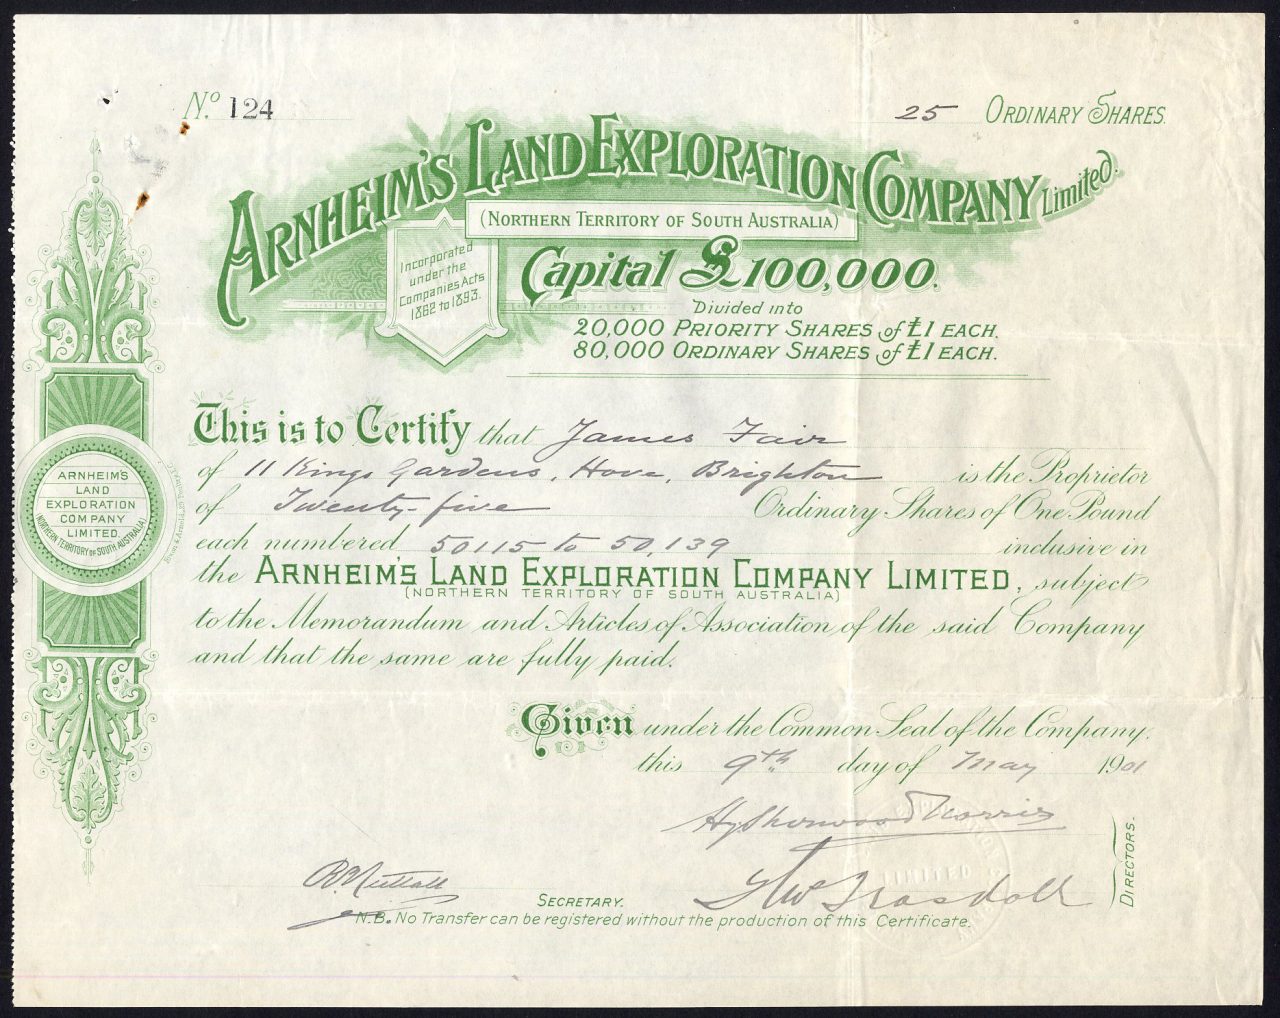 No. 124
25 ORDINARY SHARES.
ARNHEIM'S LAND EXPLORATION COMPANY Limited.
(NORTHERN TERRITORY OF SOUTH AUSTRALIA)
Incorporated
under the
Companies Acts
1862 to 1893.
Capital £100,000.
Divided into
20,000 PRIORITY SHARES of £1 EACH.
80,000 ORDINARY SHARES of £1 EACH.
This is to Certify that James Fair
of 11 Kings Gardens, Hove, Brighton is the Proprietor
of Twenty-five Ordinary Shares of One Pound
each numbered 50115 to 50,139 inclusive in
the ARNHEIM'S LAND EXPLORATION COMPANY LIMITED, subject
(NORTHERN TERRITORY OF SOUTH AUSTRALIA)
to the Memorandum and Articles of Association of the said Company
and that the same are fully paid.
ARNHEIM'S
LAND
EXPLORATION
COMPANY
LIMITED.
(NORTHERN TERRITORY OF SOUTH AUSTRALIA)
Given under the Common Seal of the Company,
this 9th day of May 1901
DIRECTORS.
LIMITED
SECRETARY.
N.B. No Transfer can be registered without the production of this Certificate.